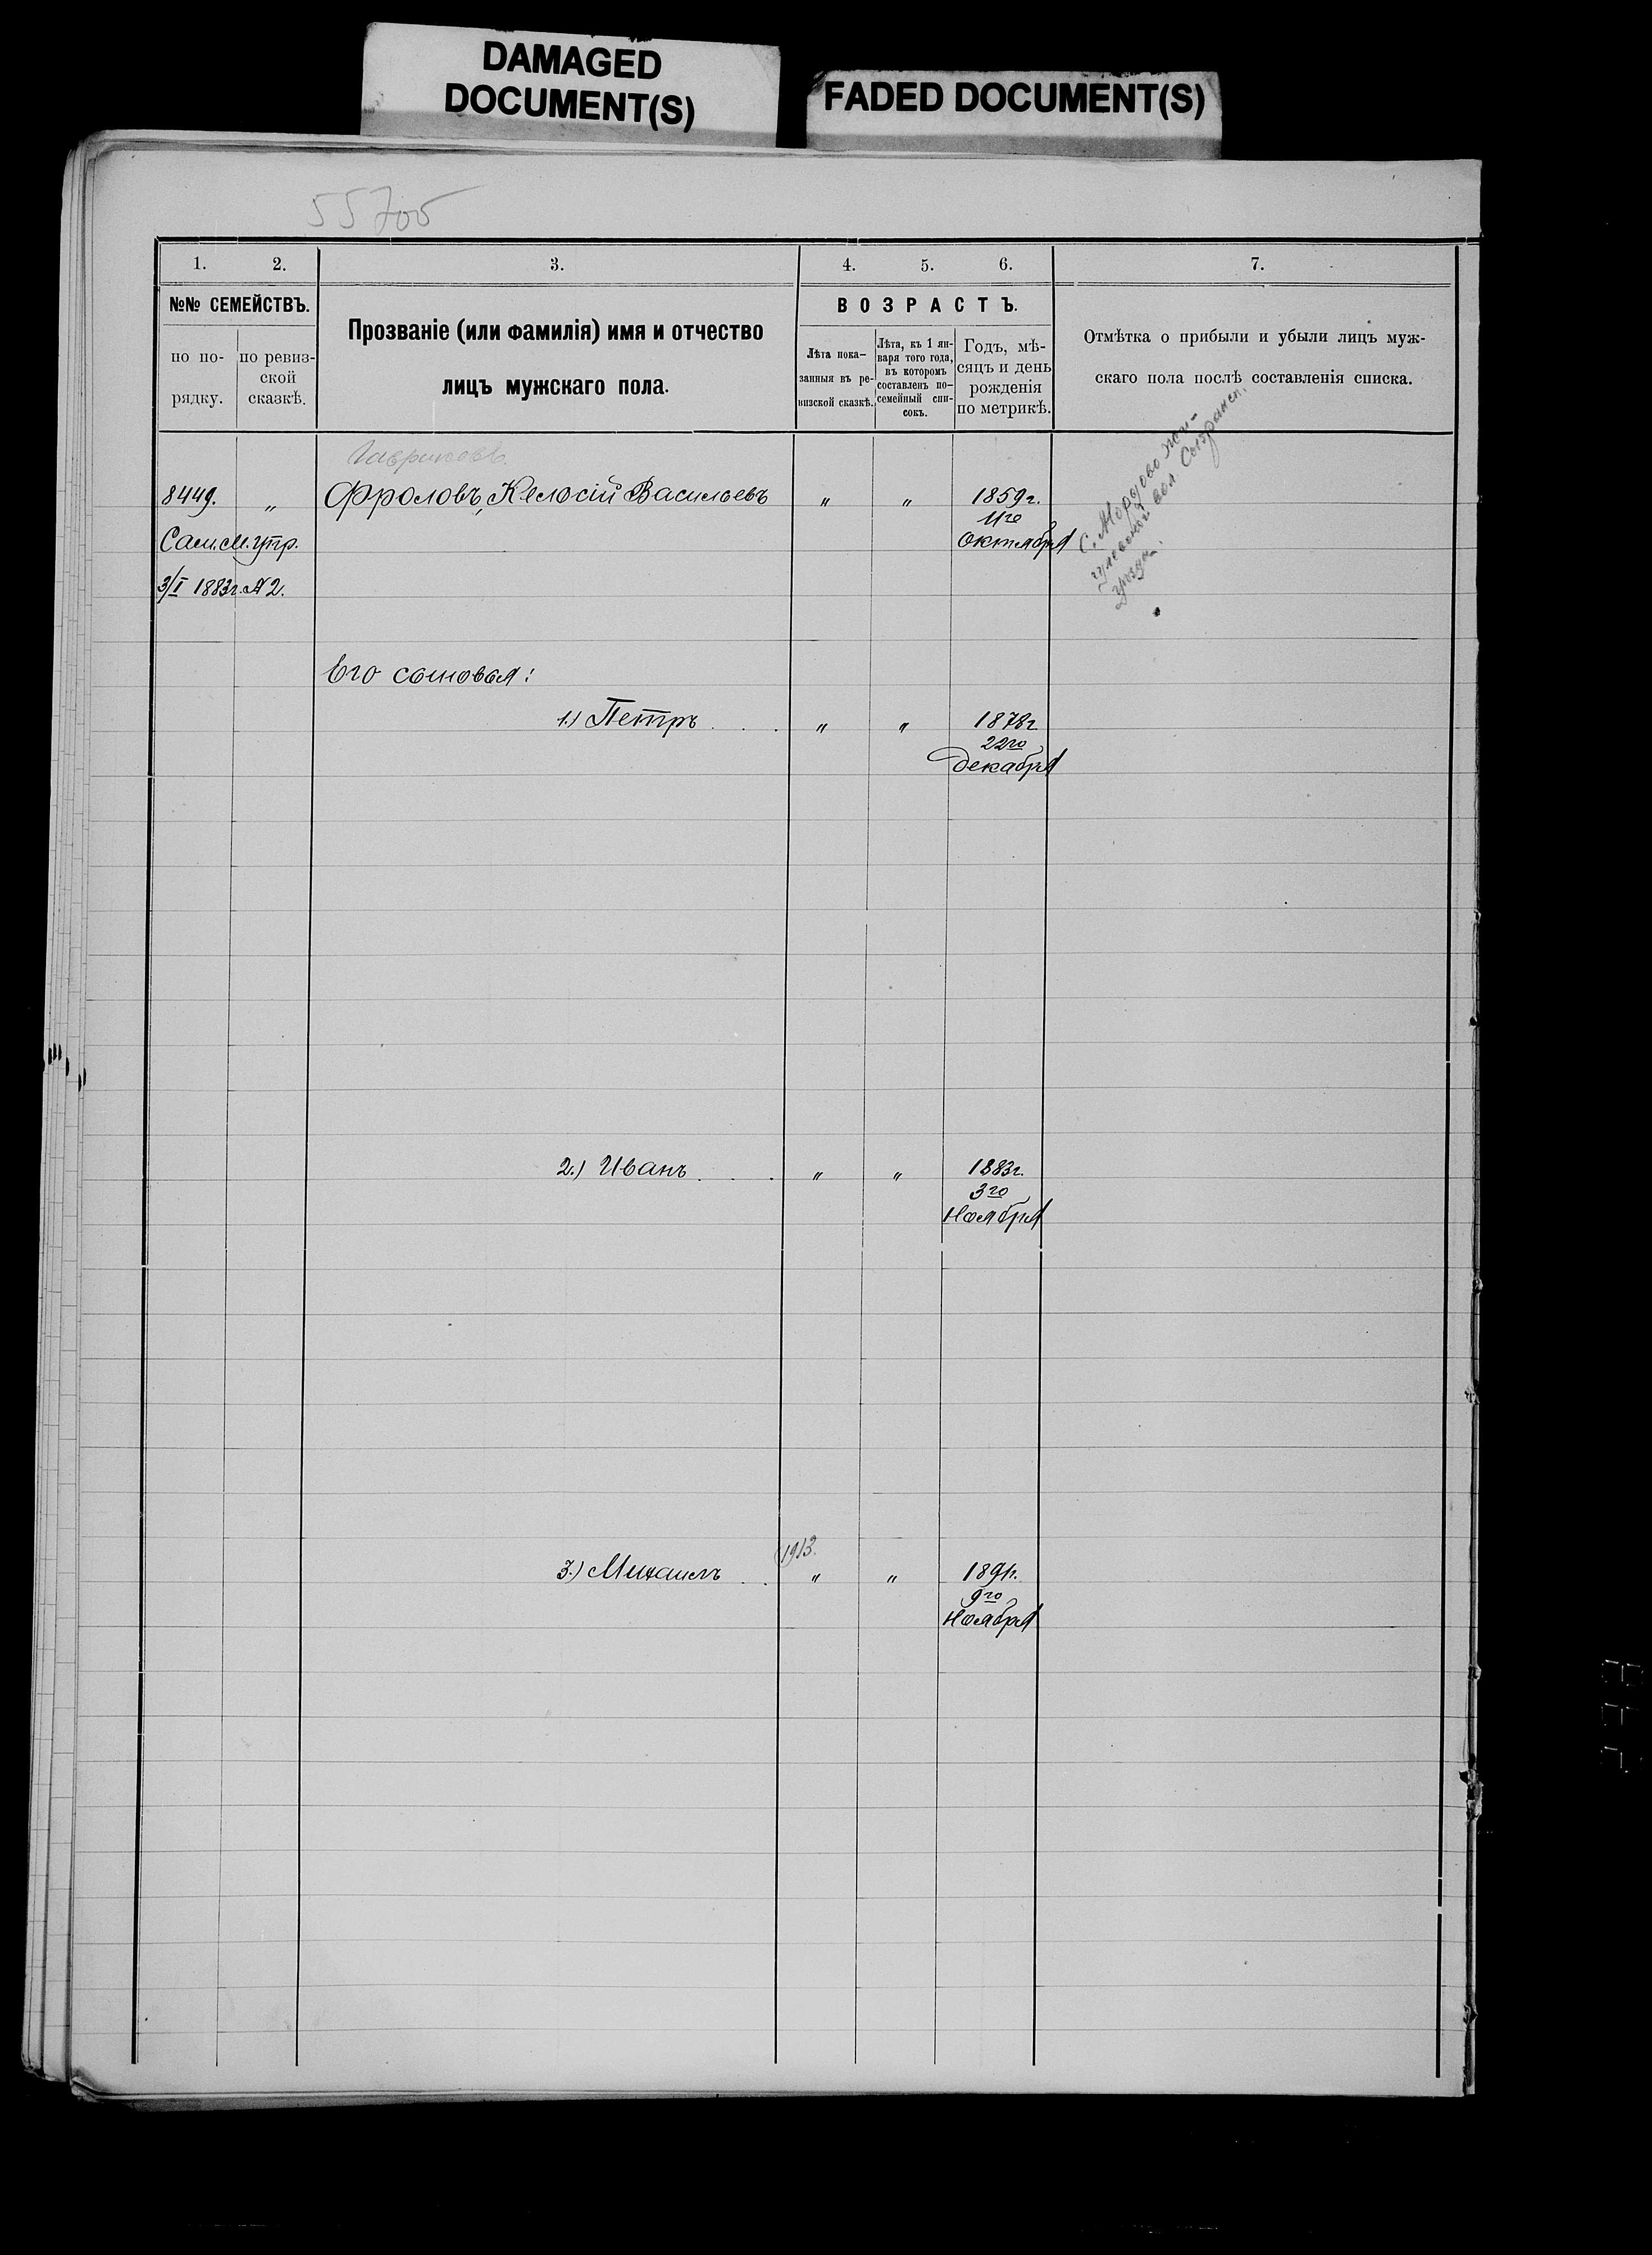 DAMAGED
DOCUMENT(S)
FADED DOCUMENT(S)
55705
1. 2. 3. 4. 5. 6. 7.
№№ СЕМЕЙСТВЪ.
по по-
рядку.
по ревиз-
ской
сказкѣ.
Прозваніе (или фамилія) имя и отчество
лицъ мужскаго пола.
ВОЗРАСТЪ.
Лѣта пока-
занныя въ ре-
визской сказкѣ.
Лѣта, къ 1 ян-
варя того года,
въ которомъ
составленъ по-
семейный спи-
сокъ.
Годъ, мѣ-
сяцъ и день
рожденія
по метрикѣ.
Отмѣтка о прибыли и убыли лицъ муж-
скаго пола послѣ составленія списка.
8449. „ Фроловъ, Келосій Васильевъ „ „ 1859г.
11го
Октября
Сам. М. упр.
3/I 1883г. № 2.
С. Мордово
вол. Сызранск.
уѣзда.
Его сыновья:
1.) Петръ . . . „ „ 1878г.
22го
Декабря
2.) Иванъ . . . „ „ 1883г.
3го
Ноября
1913.
3.) Михаилъ . . „ „ 1891г.
9го
Ноября